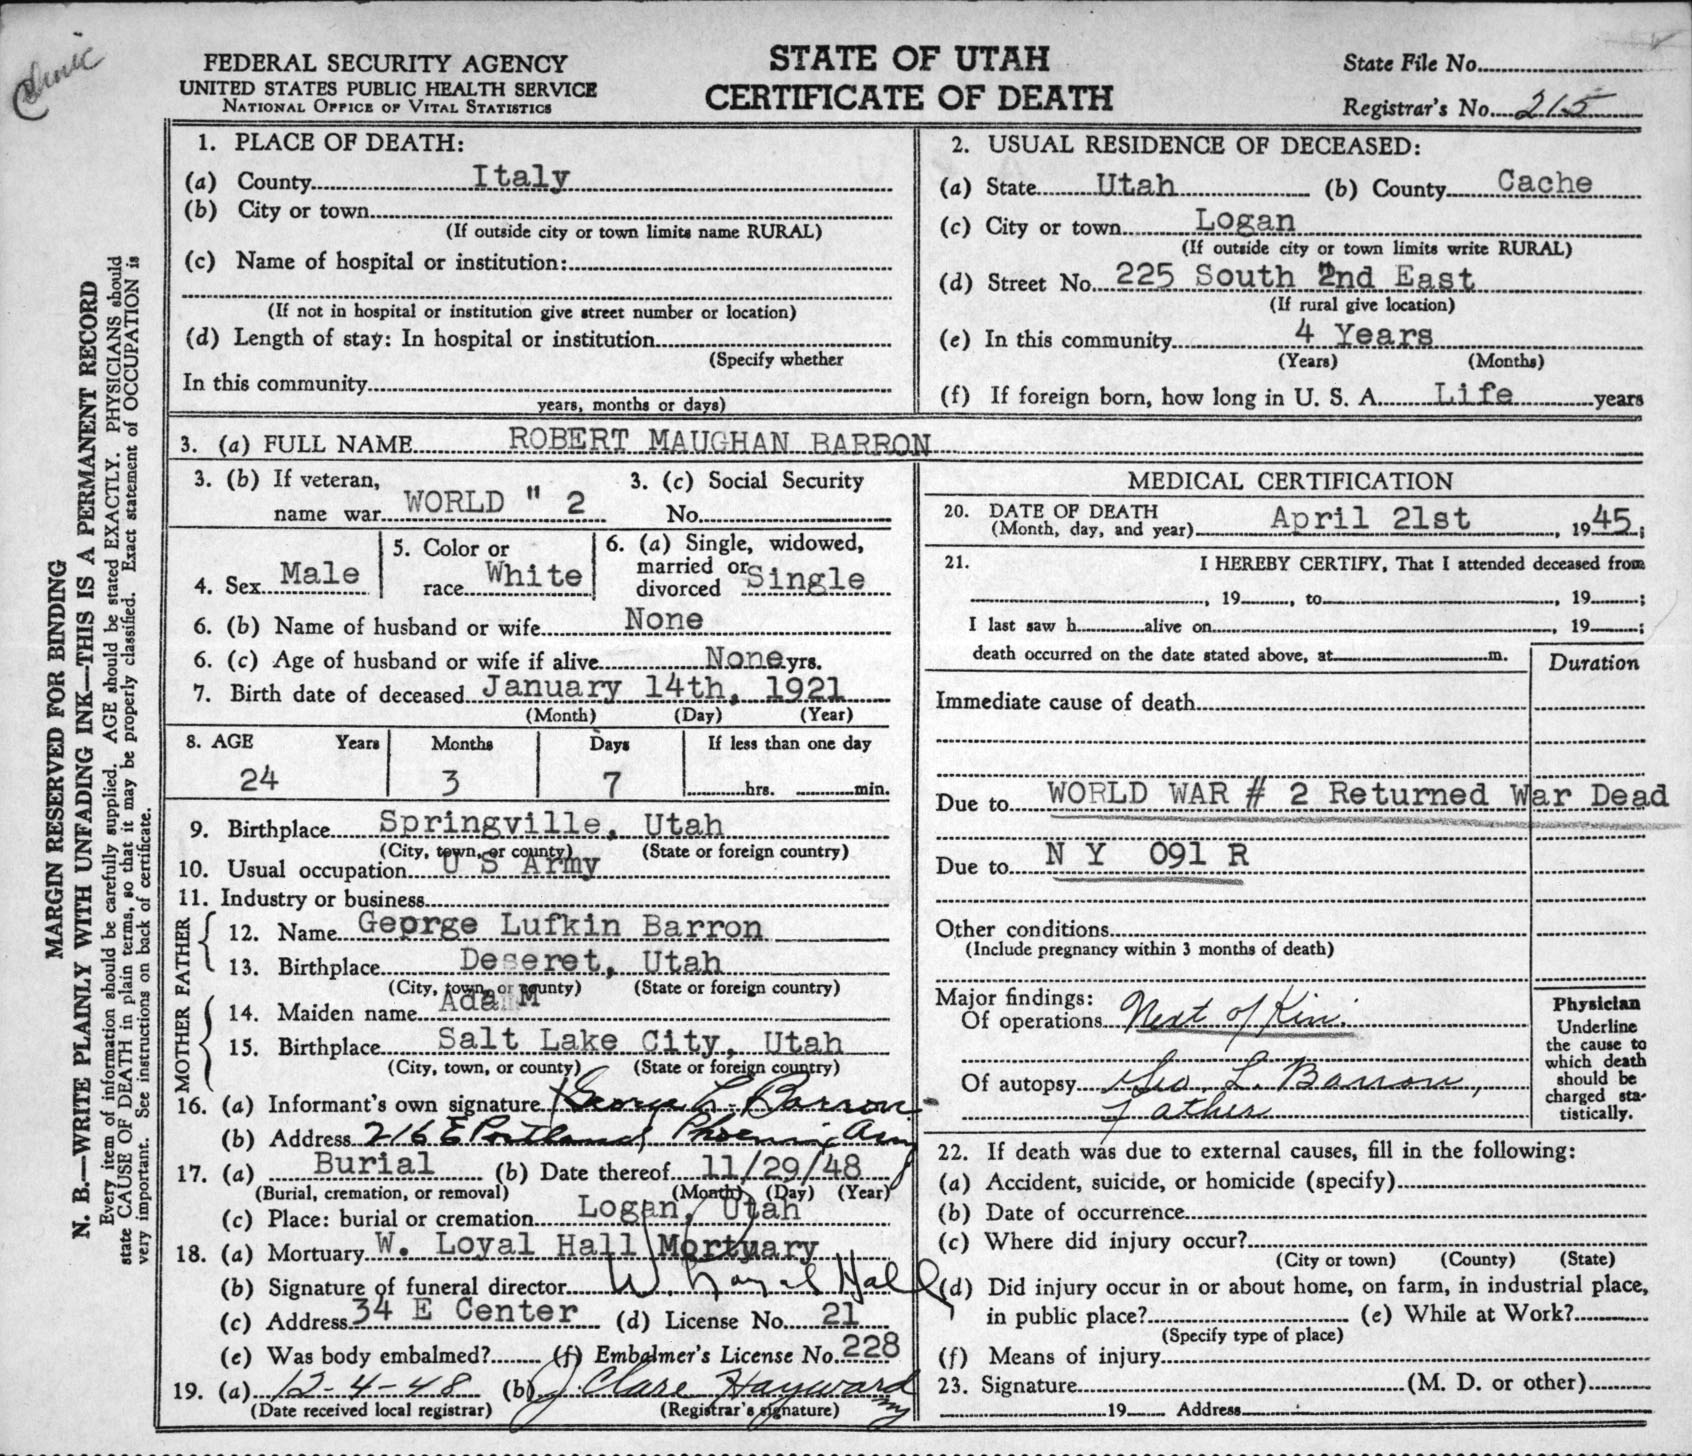 Clinic
FEDERAL SECURITY AGENCY
UNITED STATES PUBLIC HEALTH SERVICE
NATIONAL OFFICE OF VITAL STATISTICS
STATE OF UTAH
CERTIFICATE OF DEATH
State File No.
Registrar's No. 215
MARGIN RESERVED FOR BINDING
N. B.—WRITE PLAINLY WITH UNFADING INK—THIS IS A PERMANENT RECORD
Every item of information should be carefully supplied. AGE should be stated EXACTLY. PHYSICIANS should
state CAUSE OF DEATH in plain terms, so that it may be properly classified. Exact statement of OCCUPATION is
very important. See instructions on back of certificate.
1. PLACE OF DEATH:
(a) County Italy
(b) City or town
(If outside city or town limits name RURAL)
(c) Name of hospital or institution:
(If not in hospital or institution give street number or location)
(d) Length of stay: In hospital or institution
(Specify whether
In this community
years, months or days)
2. USUAL RESIDENCE OF DECEASED:
(a) State Utah (b) County Cache
(c) City or town Logan
(If outside city or town limits write RURAL)
(d) Street No. 225 South 2nd East
(If rural give location)
(e) In this community 4 Years
(Years) (Months)
(f) If foreign born, how long in U. S. A. Life years
3. (a) FULL NAME ROBERT MAUGHAN BARRON
3. (b) If veteran,
name war WORLD " 2
3. (c) Social Security
No.
4. Sex Male
5. Color or
race White
6. (a) Single, widowed,
married or
divorced Single
6. (b) Name of husband or wife None
6. (c) Age of husband or wife if alive None yrs.
7. Birth date of deceased January 14th, 1921
(Month) (Day) (Year)
8. AGE Years Months Days If less than one day
24 3 7 hrs. min.
9. Birthplace Springville, Utah
(City, town, or county) (State or foreign country)
10. Usual occupation U S Army
11. Industry or business
FATHER
12. Name George Lufkin Barron
13. Birthplace Deseret, Utah
(City, town, or county) (State or foreign country)
MOTHER
14. Maiden name Ada M
15. Birthplace Salt Lake City, Utah
(City, town, or county) (State or foreign country)
16. (a) Informant's own signature George L. Barron
(b) Address 216 E Portland, Phoenix, Ariz
17. (a) Burial (b) Date thereof 11/29/48
(Burial, cremation, or removal) (Month) (Day) (Year)
(c) Place: burial or cremation Logan, Utah
18. (a) Mortuary W. Loyal Hall Mortuary
(b) Signature of funeral director W. Loyal Hall
(c) Address 34 E Center (d) License No. 21
(e) Was body embalmed? (f) Embalmer's License No. 228
19. (a) 12-4-48 (b) J. Clare Hayward
(Date received local registrar) (Registrar's signature)
MEDICAL CERTIFICATION
20. DATE OF DEATH
(Month, day, and year) April 21st, 1945;
21. I HEREBY CERTIFY, That I attended deceased from
, 19 , to , 19 ;
I last saw h alive on , 19 ;
death occurred on the date stated above, at m.
Duration
Immediate cause of death
Due to WORLD WAR # 2 Returned War Dead
Due to N Y 091 R
Other conditions
(Include pregnancy within 3 months of death)
Major findings:
Of operations Next of Kin.
Of autopsy Geo. L. Barron,
Father
Physician
Underline
the cause to
which death
should be
charged sta-
tistically.
22. If death was due to external causes, fill in the following:
(a) Accident, suicide, or homicide (specify)
(b) Date of occurrence
(c) Where did injury occur?
(City or town) (County) (State)
(d) Did injury occur in or about home, on farm, in industrial place,
in public place? (e) While at Work?
(Specify type of place)
(f) Means of injury
23. Signature (M. D. or other)
19 Address